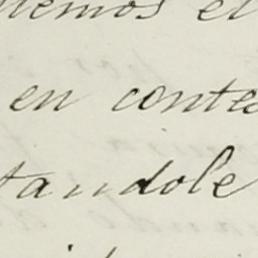 nemos el
en conte
tandole